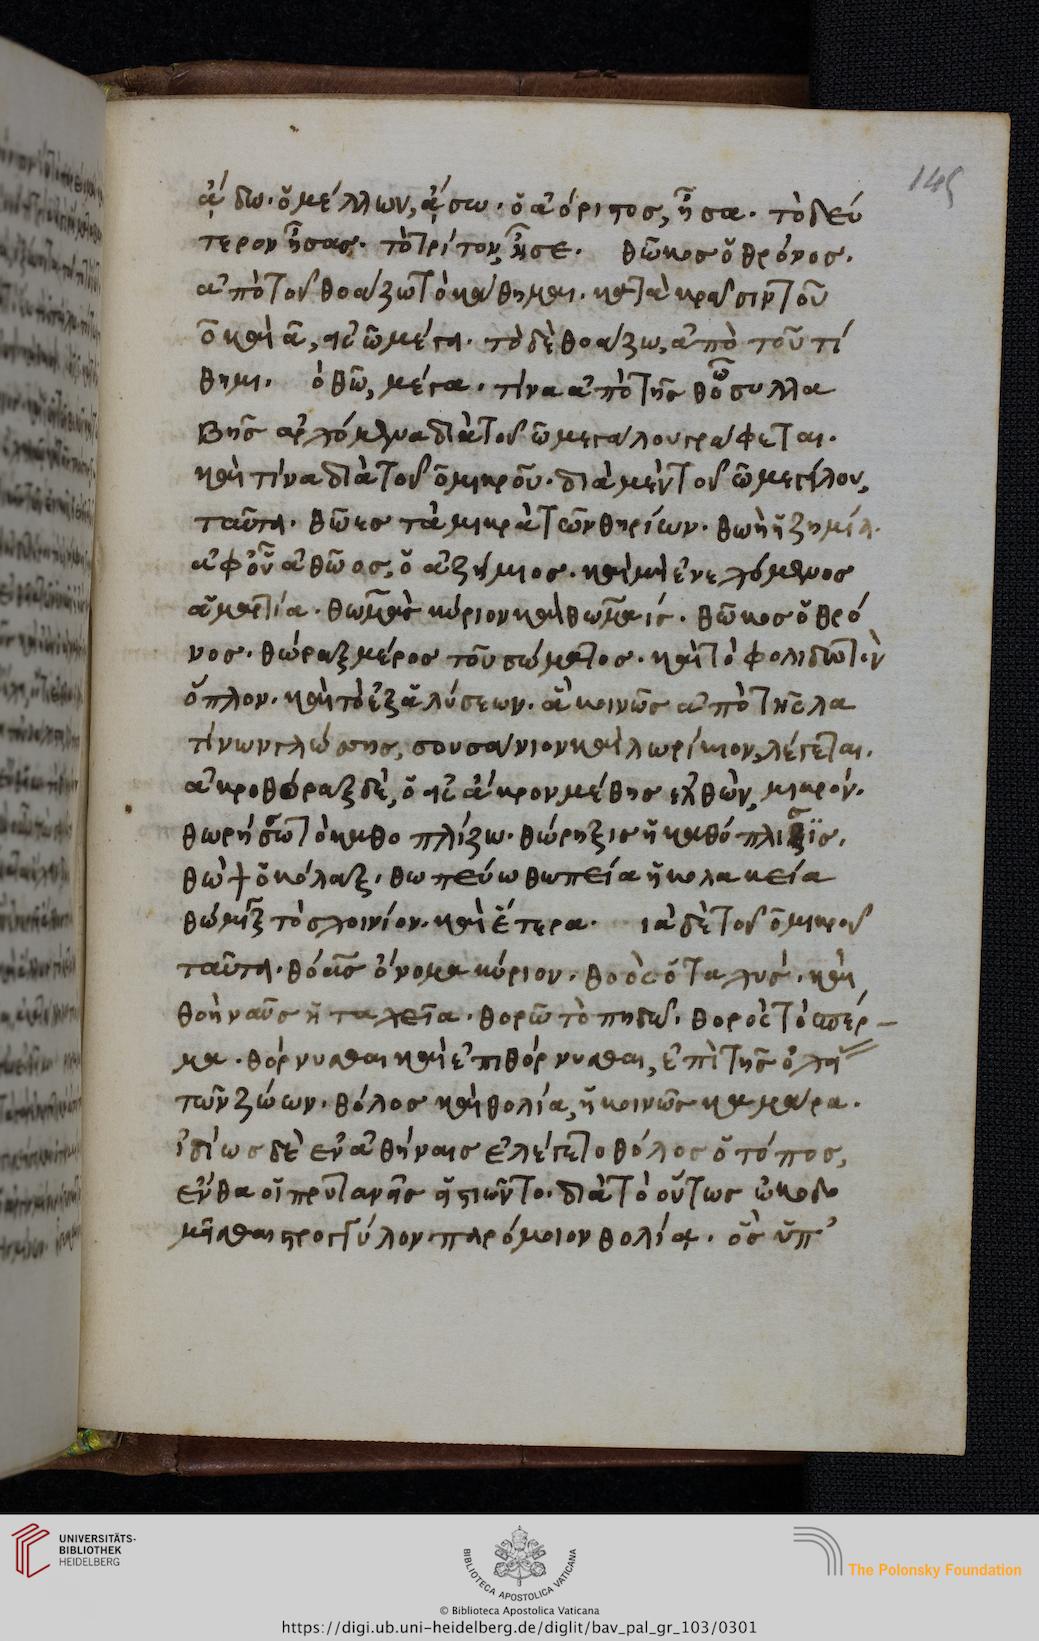 145
ᾄδω· ὁ μέλλων, ᾄσω· ὁ ἀόριστος, ᾖσα· τὸ δεύ
τερον ᾖσας· τὸ τρίτον, ᾖσε· θῶκος ὁ θρόνος·
ἀπὸ τοῦ θοάζω τὸ κάθημαι· κατὰ κράσιν τοῦ
ο καὶ α, εἰς ω μέγα· τὸ δὲ θοάζω, ἀπὸ τοῦ τί
θημι· ὁ θῶ, μέγα· τίνα ἀπὸ τῆς θω συλλα
βῆς ἀρχόμενα διὰ τοῦ ω μεγάλου γράφεται·
καὶ τίνα διὰ τοῦ ο μικροῦ· διὰ μὲν τοῦ ω μεγάλου,
ταῦτα· θῶες τὰ μικρὰ τῶν θηρίων· θωὴ ἡ ζημία·
ἀφ' οὗ ἀθῶος, ὁ ἀζήμιος· καὶ μὴ ἐνεχόμενος
ἁμαρτία· θωμᾶς κύριον καὶ θωμαΐς· θῶκος ὁ θρό
νος· θώραξ μέρος τοῦ σώματος· καὶ τὸ φολιδωτὸν
ὅπλον· καὶ τὸ ἐξ ἁλύσεων· ἃ κοινῶς ἀπὸ τῆς λα
τίνων γλώσσης, σουσάνιον καὶ λωρίκιον, λέγεται·
ἀκροθόραξ δὲ, ὁ εἰς ἄκρον μέθης ἐλθὼν, μικρόν·
θωρήσσω τὸ καθοπλίζω· θώρηξις ἡ καθόπλισις·
θὼψ ὁ κόλαξ· θωπεύω θωπεία ἡ κολακεία
θώμιξ τὸ σχοινίον· καὶ ἕτερα· ιὰ δὲ τοῦ ο μικροῦ
ταῦτα· θόας ὄνομα κύριον· θοὸς ὁ ταχύς· καὶ
θοὴ ναῦς ἡ ταχεῖα· θορῶ τὸ πηδῶ· θορὸς τὸ σπέρ
μα· θόρνυσθαι καὶ ἐπιθόρνυσθαι, ἐπὶ τῆς ὀχεί
τῶν ζώων· θόλος καὶ θολία, ἡ κοινῶς καμάρα·
ἰδίως δὲ ἐν ἀθήναις ἐλέγετο θόλος ὁ τόπος,
ἔνθα οἱ πρυτανεῖς ἡστιῶντο· διὰ τὸ οὕτως ὠκοδο
μῆσθαι στρογγύλον παρόμοιον θολία· ὃς ὑπ'
UNIVERSITÄTS-
BIBLIOTHEK
HEIDELBERG
BIBLIOTECA APOSTOLICA VATICANA
The Polonsky Foundation
© Biblioteca Apostolica Vaticana
https://digi.ub.uni-heidelberg.de/diglit/bav_pal_gr_103/0301